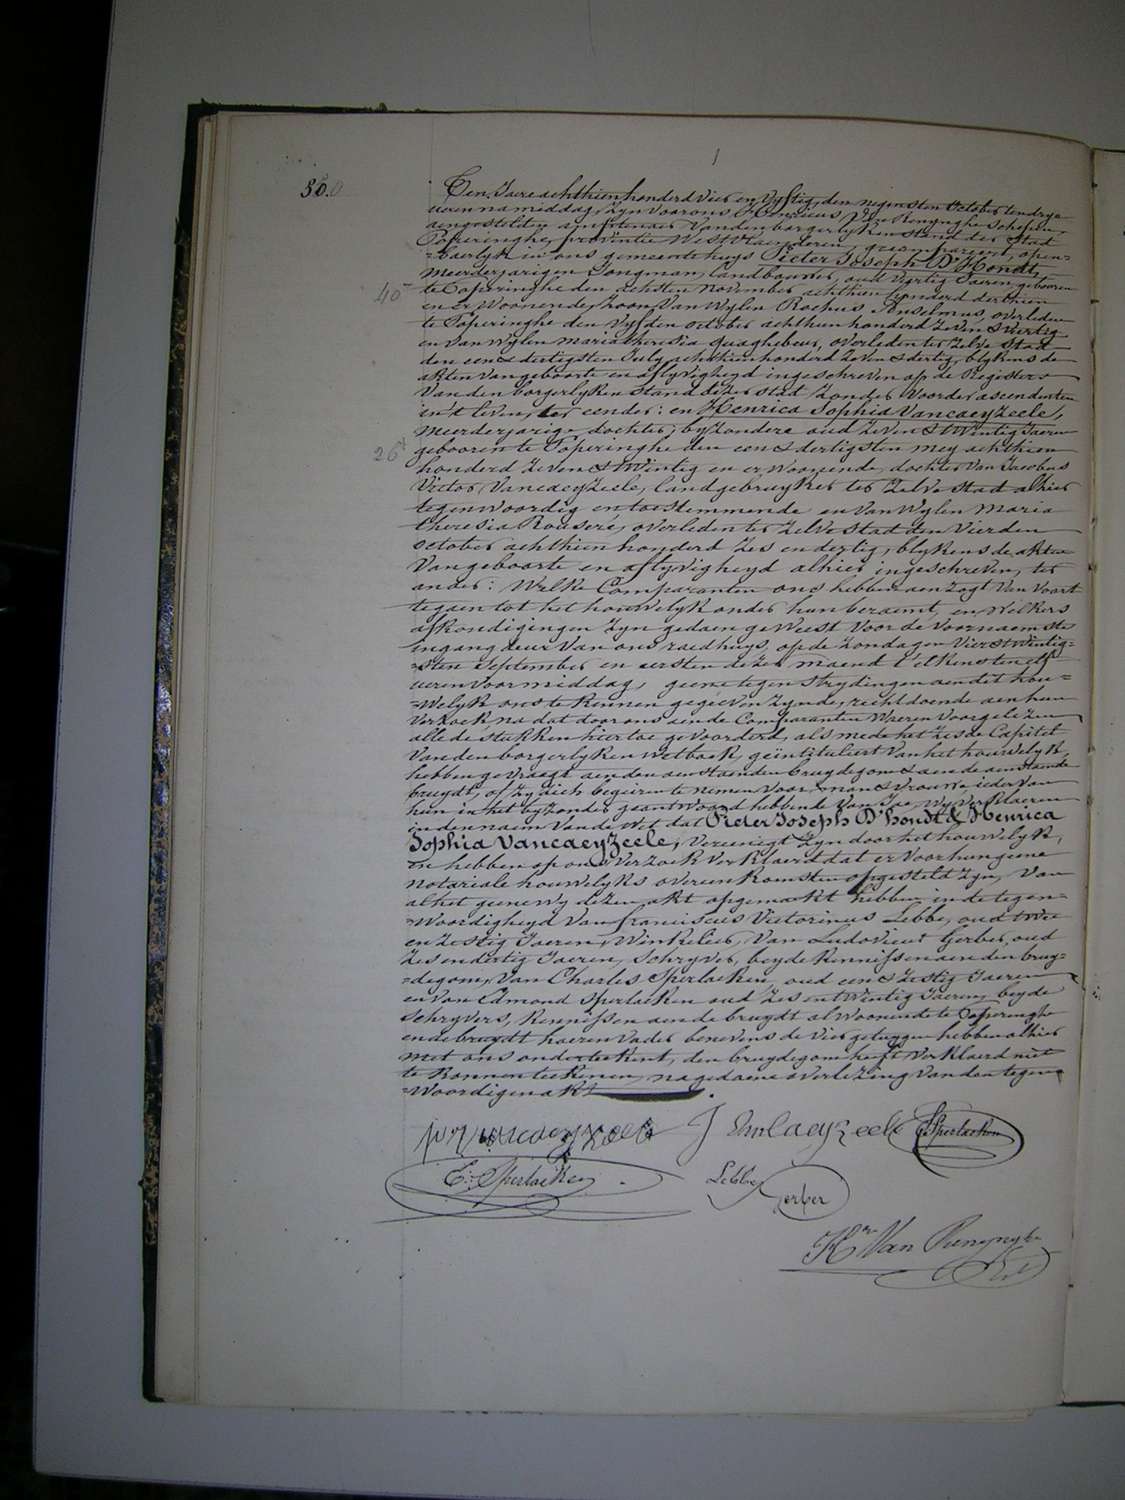 36.0
Ten Jaere achthien honderd vier en vyftig, den negensten october ten drye
ueren namiddag, zyn voor ons Henricus Van Renynghe schepen,
aengestelden ambtenaer van den borgerlyken stand der Stad
Poperinghe, provintie West Vlaenderen, gecompareert, open=
=baerlyk in ons gemeentehuys Pieter Joseph D'Hondt,
meerderjarigen Jongman, landbouwer, oud veertig Jaeren, gebooren
40
te Poperinghe den achsten november achthien honderd derthien
en er Woonende, zoon van wylen Rochus Anselmus, overleden
te Poperinghe den vyfden october achthien honderd zeven & veertig
en van wylen maria theresia Quaghebeur, overleden ter zelve Stad
den een & dertigsten July achthien honderd zeven & dertig, blykens de
akten van geboorte en aflyvigheyd ingeschreven op de Registers
van den borgerlyken stand dezer stad zonder voorder ascendenten
in 't leven, ter eender: en Henrica Sophia Vancaeyzeele,
meerderjarige dochter, byzondere oud zeven & twintig Jaeren
26
gebooren te Poperinghe den een & dertigsten mey achthien
honderd zeven & twintig en er woonende, dochter van Jacobus
Victor Vancaeyzeele, landgebruyker ter zelve stad alhier
tegenwoordig en toestemmende en van wylen Maria
theresia Rouseré, overleden ter zelve stad den vierden
october achthien honderd zes en dertig, blykens de akten
van geboorte en aflyvigheyd alhier ingeschreven, ter
ander: Welke Comparanten ons hebben aenzogt van voort
te gaen tot het houwelyk onder hun beraemt, en welkers
afkondigingen zyn gedaen geweest voor de voornaemste
ingang deur van ons raedhuys, op de zondagen vier & twintig=
=sten september en eersten dezer maend t'elkenstenelf
ueren voormiddag, geene tegenstrydingen aen dit hou=
=welyk ons te kennen gegeven zynde, rechtdoende aen hun
verzoek na dat door ons aen de Comparanten waeren voorgelezen
alle de stukken hiertoe gevorderd, als mede het zesde Capitel
van den borgerlyken wetboek, geïntituleert van het houwelyk,
hebben gevraegt aen den aenstaenden bruydegom & aen de aenstaende
bruydt, of zy zich begeiren te nemen voor man & vrouwe ieder van
hun in het byzonder geantwoord hebbende van Ja, wy verklaeren
in den naem van de wet dat Pieter Joseph D'hondt & Henrica
Sophia Vancaeyzeele, vereenigt zyn door het houwelyk,
en hebben op ons verzoek verklaerd dat er voor hun geene
notariale houwelyks overeenkomsten opgesteld zyn, van
al het geene wy dezen akt opgemaekt hebben in de tegen=
=woordigheyd van franciscus Victorinus Lebbe, oud twee
en zestig Jaeren, Winkelier, van Ludovicus Gerber, oud
zes en dertig Jaeren, schryver, beyde kennissen aen den bruy=
=degom, van Charles Sperlaeken, oud een & zestig Jaeren
en van Edmond Sperlaeken oud zes en twintig Jaeren, beyde
schryvers, kennissen aen de bruydt al woonende te Poperinghe
en de bruydt haeren vader benevens de vier getuygen hebben alhier
met ons onderteekent, den bruydegom heeft verklaerd niet
te konnen teekenen, na gedaene overlezing van den tegen=
=woordigen akt
J Vancaeyzeele Sperlaeken
E. Sperlaeken Lebbe Gerber
Hri Van Renynghe